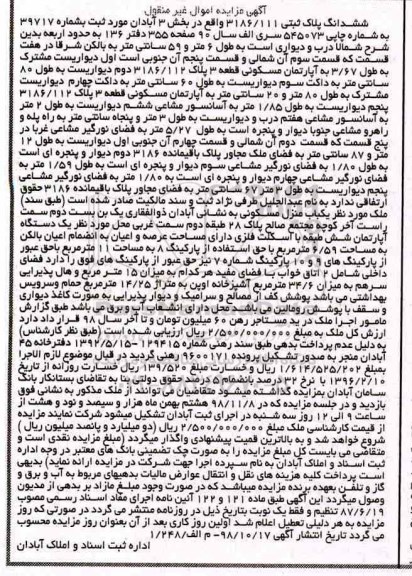 آگهی مزایده اموال غیر منقول
ششدانگ پلاک ثبتی ۳۱۸۶/۱۱۱ واقع در بخش ۳ آبادان مورد ثبت بشماره ۳۹۷۱۷
به شماره چاپی ۵۴۵۰۷۳ سری الف سال ۹۰ صفحه ۳۵۵ دفتر ۱۳۶ به حدود اربعه بدین
شرح شمالا درب و دیواری است به طول ۶ متر و ۵۹ سانتی متر به بالکن شرقا در هفت
قسمت که قسمت سوم آن شمالی و قسمت پنجم آن جنوبی است اول دیواریست مشترک
به طول ۳/۶۷ به آپارتمان مسکونی قطعه ۳ پلاک ۳۱۸۶/۱۱۲ دوم دیواریست به طول ۸۰
سانتی متر به داکت سوم دیواریست به طول ۶۰ سانتی متر به داکت چهارم دیواریست
مشترک به طول ۸۰ متر و ۲۰ سانتی متر به آپارتمان مسکونی قطعه ۳ پلاک ۳۱۸۶/۱۱۲
پنجم دیواریست به طول ۱/۸۵ متر به آسانسور مشاعی ششم دیواریست به طول ۲ متر
به آسانسور مشاعی هفتم درب و دیواریست به طول ۳ متر و پنجاه سانتی متر به راه پله و
راهرو مشاعی جنوبا دیوار و پنجره است به طول ۵/۲۷ متر به فضای نورگیر مشاعی غربا در
پنج قسمت که قسمت دوم آن شمالی و قسمت چهارم آن جنوبی است اول دیواریست به طول ۱۲
متر و ۸۷ سانتی متر به فضای ملک مجاور پلاک باقیمانده ۳۱۸۶ دوم دیوار و پنجره ای است
به طول ۱/۸۰ به فضای نورگیر مشاعی سوم دیوار و پنجره ای است به طول ۱/۵۹ متر به
فضای نورگیر مشاعی چهارم دیوار و پنجره ای است به طول ۱/۸۰ متر به فضای نورگیر مشاعی
پنجم دیواریست به طول ۳ متر ۶۷ سانتی متر به فضای مجاور پلاک باقیمانده ۳۱۸۶ حقوق
ارتفاقی ندارد به نام عبدالجلیل ظرفی نژاد ثبت و سند مالکیت صادر شده است (طبق سند)
ملک مورد نظر یکباب منزل مسکونی به نشانی آبادان ذوالفقاری یک بن بست دوم سمت
راست آخر کوچه مجتمع صالح پلاک ۲۸ طبقه دوم سمت غربی محل مورد نظر یک دستگاه
آپارتمان شش طبقه با اسکلت فلزی دارای مساحت عرصه و اعیان به انضمام اعیان بالکن
به مساحت ۶/۵۹ مترمربع با حق استفاده از پارکینگ ۸ به مساحت ۱۱ مترمربع باحق عبور
از پارکینگ های ۹ و ۱۰ پارکینگ شماره ۷ نیز حق عبور از پارکینگ های فوق را دارد فضای
داخلی شامل ۲ اتاق خواب با فضای مفید هر کدام به میزان ۱۵ متر مربع و هال پذیرایی
سرهم به میزان ۳۴/۶ مترمربع آشپزخانه اوپن به متراژ ۱۴/۲۵ مترمربع حمام وسرویس
بهداشتی می باشد پوشش کف از مصالح و سرامیک و دیوار پذیرایی به صورت کاغذ دیواری
و سقف با پوشش رومالین می باشد محل دارای انشعاب آب و برق می باشد طبق گزارش
مامور اجرا ملک در ید مستاجر رهن ۶۰ میلیون تومان و تا آخر سال ۹۸ قرار داد دارد
ارزش کل ملک به مبلغ ۲/۵۰۰/۰۰۰/۰۰۰ ریال ارزیابی شده است (طبق نظر کارشناس)
و دلیل عدم پرداخت بدهی طبق سند رهنی شماره ۱۲۹۴۱۵ - ۱۳۹۲/۵/۱۵ دفترخانه ۴۵
آبادان منجر به صدور تشکیل پرونده ۹۶۰۰۱۷۱ رهنی گردید در قبال موضوع لازم الاجرا
بمبلغ ۱/۶۱۴/۵۲۵/۲۰۲ ریال و خسارت مبلغ ۱۳۹/۵۲۰ ریال خسارت روزانه از تاریخ
۱۳۹۶/۲/۱۰ با نرخ ۳۲ درصد بانضمام ۵ درصد حقوق دولتی بنا به تقاضای بستانکار بانک
سامان آبادان بمزایده گذاشته میشود متقاضیان می توانند از ملک مذکور به نشانی فوق
بازدید و در جلسه مزایده که در ۹۸/۱۱/۸ هشتم بهمن ماه هزار و سیصد و نود و هشت از
ساعت ۹ الی ۱۲ روز سه شنبه در اجرای ثبت آبادان تشکیل میشود شرکت نمایند مزایده
از قیمت کارشناسی ملک مبلغ ۲/۵۰۰/۰۰۰/۰۰۰ ریال (دو میلیارد و پانصد میلیون ریال )
شروع خواهد شد و به بالاترین قیمت پیشنهادی واگذار میگردد (مبلغ مزایده نقدی است و
متقاضی می بایست کل مبلغ مزایده را به صورت چک تضمینی بانک های معتبر در وجه اداره
ثبت اسناد و املاک آبادان به نام سپرده اجرا جهت شرکت در مزایده ارائه نماید) بدیهی
است پرداخت کلیه هزینه های نقل و انتقال عوارض مالیات بدهیهای مربوط به آب و برق و
گاز و تلفن بعهده برنده مزایده میباشد که در صورت وجود مبلغ مازاد بر بدهی از مدیون
وصول میگردد این آگهی طبق ماده ۱۲۱ و ۱۲۲ آئین نامه اجرای مفاد اسناد رسمی مصوب
۸۷/۶/۱۹ تنظیم و فقط یک نوبت بتاریخ ذیل در روزنامه منتشر می گردد در صورتی که روز
مزایده به هر دلیلی تعطیل اعلام شد اولین روز کاری بعد از آن بعنوان روز مزایده محسوب
می گردد تاریخ انتشار آگهی ۹۸/۱۰/۱۷- م الف ۱/۲۴۸
اداره ثبت اسناد و املاک آبادان